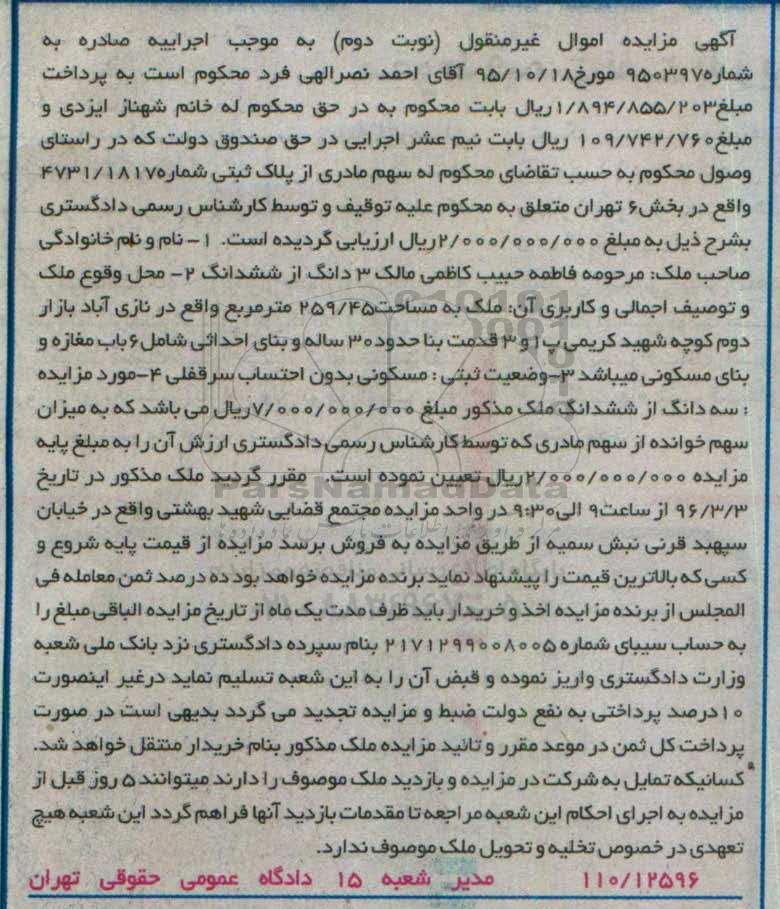 آگهی مزایده اموال غیرمنقول (نوبت دوم) به موجب اجراییه صادره به
شماره۹۵۰۳۹۷ مورخ۹۵/۱۰/۱۸ آقای احمد نصرالهی فرد محکوم است به پرداخت
مبلغ۱/۸۹۴/۸۵۵/۲۰۳ریال بابت محکوم به در حق محکوم له خانم شهناز ایزدی و
مبلغ۱۰۹/۷۴۲/۷۶۰ ریال بابت نیم عشر اجرایی در حق صندوق دولت که در راستای
وصول محکوم به حسب تقاضای محکوم له سهم مادری از پلاک ثبتی شماره۴۷۳۱/۱۸۱۷
واقع در بخش۶ تهران متعلق به محکوم علیه توقیف و توسط کارشناس رسمی دادگستری
بشرح ذیل به مبلغ ۲/۰۰۰/۰۰۰/۰۰۰ریال ارزیابی گردیده است. ۱- نام و نام خانوادگی
صاحب ملک: مرحومه فاطمه حبیب کاظمی مالک ۳ دانگ از ششدانگ ۲- محل وقوع ملک
و توصیف اجمالی و کاربری آن: ملک به مساحت۲۵۹/۴۵ مترمربع واقع در نازی آباد بازار
دوم کوچه شهید کریمی پ۱و۳ قدمت بنا حدود۳۰ ساله و بنای احداثی شامل۶باب مغازه و
بنای مسکونی میباشد ۳-وضعیت ثبتی : مسکونی بدون احتساب سرقفلی ۴-مورد مزایده
: سه دانگ از ششدانگ ملک مذکور مبلغ ۷/۰۰۰/۰۰۰/۰۰۰ریال می باشد که به میزان
سهم خوانده از سهم مادری که توسط کارشناس رسمی دادگستری ارزش آن را به مبلغ پایه
مزایده ۲/۰۰۰/۰۰۰/۰۰۰ریال تعیین نموده است. مقرر گردید ملک مذکور در تاریخ
۹۶/۳/۳ از ساعت۹ الی۹:۳۰ در واحد مزایده مجتمع قضایی شهید بهشتی واقع در خیابان
سپهبد قرنی نبش سمیه از طریق مزایده به فروش برسد مزایده از قیمت پایه شروع و
کسی که بالاترین قیمت را پیشنهاد نماید برنده مزایده خواهد بود ده درصد ثمن معامله فی
المجلس از برنده مزایده اخذ و خریدار باید ظرف مدت یک ماه از تاریخ مزایده الباقی مبلغ را
به حساب سیبای شماره ۲۱۷۱۲۹۹۰۰۸۰۰۵ بنام سپرده دادگستری نزد بانک ملی شعبه
وزارت دادگستری واریز نموده و قبض آن را به این شعبه تسلیم نماید درغیر اینصورت
۱۰درصد پرداختی به نفع دولت ضبط و مزایده تجدید می گردد بدیهی است در صورت
پرداخت کل ثمن در موعد مقرر و تائید مزایده ملک مذکور بنام خریدار منتقل خواهد شد.
کسانیکه تمایل به شرکت در مزایده و بازدید ملک موصوف را دارند میتوانند ۵ روز قبل از
مزایده به اجرای احکام این شعبه مراجعه تا مقدمات بازدید آنها فراهم گردد این شعبه هیچ
تعهدی در خصوص تخلیه و تحویل ملک موصوف ندارد.
۱۱۰/۱۲۵۹۶ مدیر شعبه ۱۵ دادگاه عمومی حقوقی تهران
ParsNamadData